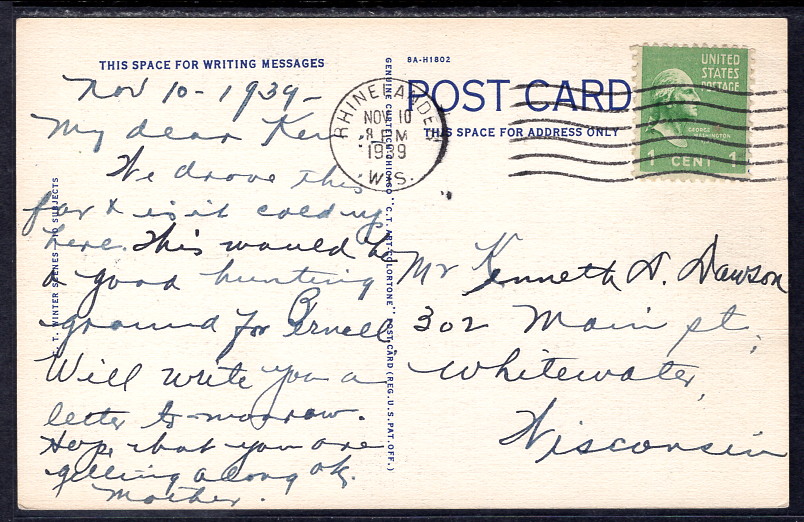 THIS SPACE FOR WRITING MESSAGES
Nov 10 - 1939 -
My dear Ken
We drove this
far & is it cold up
here. This would be
a good hunting
ground for Bernell.
Will write you a
letter to-morrow.
Hope that you are
getting along ok.
Mother.
T. WINTER SCENES 10 SUBJECTS
GENUINE CURTEICH-CHICAGO "C.T. ART-COLORTONE" POST CARD (REG. U.S. PAT. OFF.)
BA-H1802
POST CARD
THIS SPACE FOR ADDRESS ONLY
RHINELANDER
NOV 10
8 PM
1939
WIS.
UNITED
STATES
POSTAGE
GEORGE
WASHINGTON
1 CENT 1
Mr Kenneth D. Dawson
302 Main st.
Whitewater,
Wisconsin